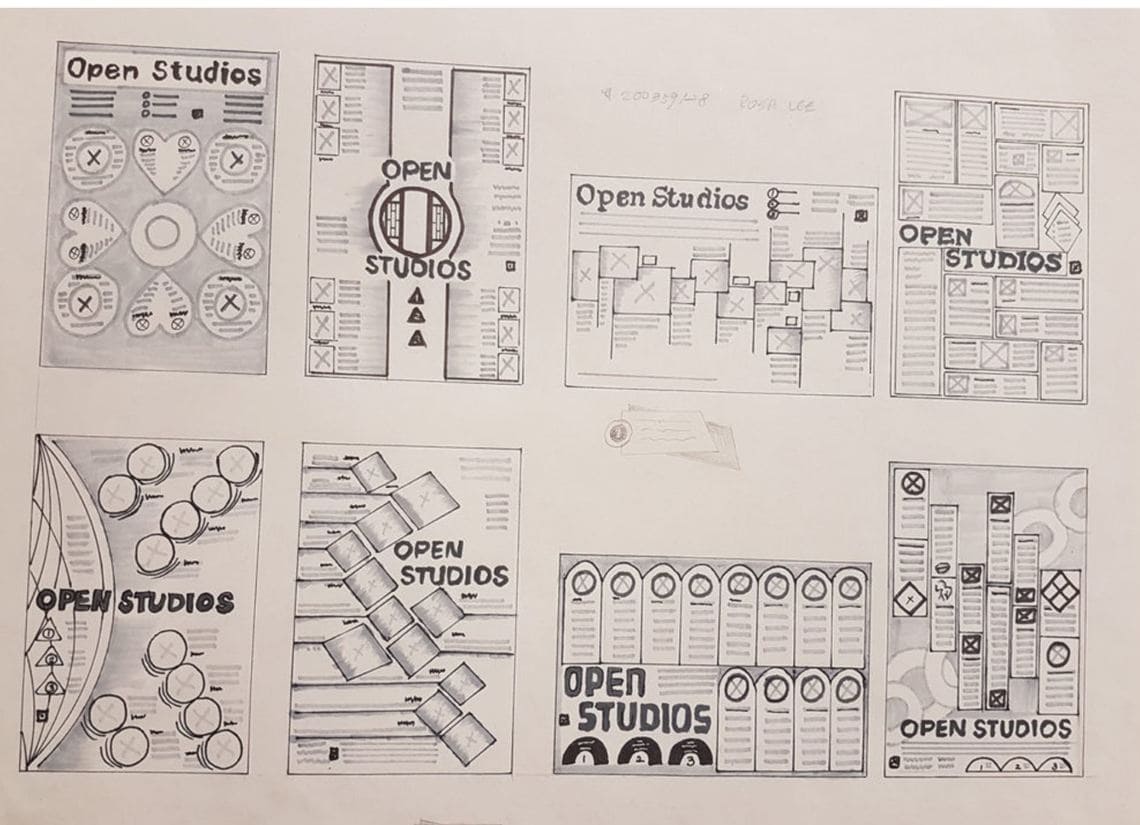 Open Studios
OPEN
STUDIOS
1
2
3
ROSA LEE
Open Studios
1
2
3
OPEN
STUDIOS
OPEN STUDIOS
1
2
3
OPEN
STUDIOS
OPEN
STUDIOS
1 2 3
OPEN STUDIOS
1 2 3